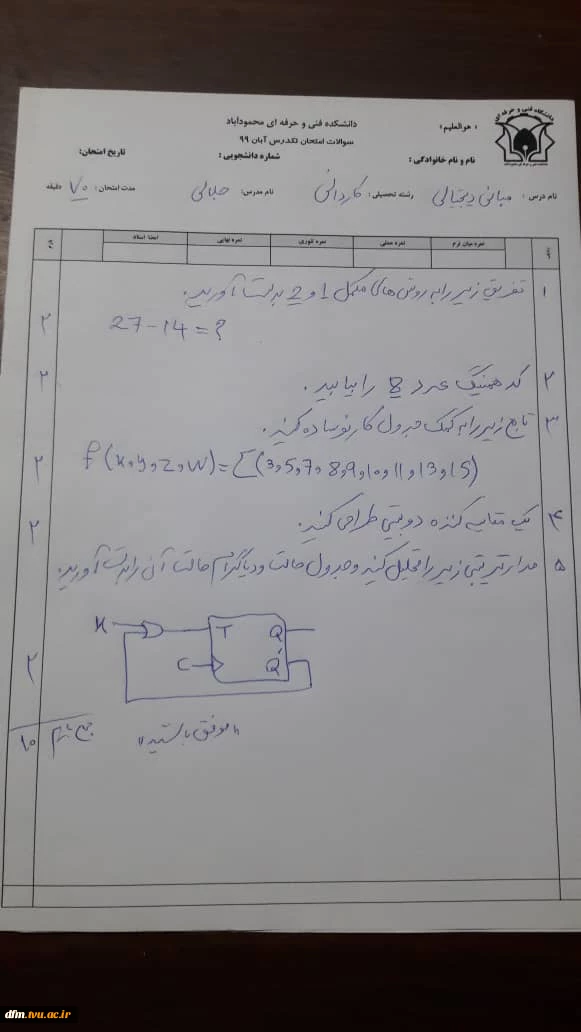 دانشکده فنی و حرفه ای محمودآباد
« هوالعلیم »
سوالات امتحان تکدرس آبان ۹۹
نام و نام خانوادگی : شماره دانشجویی : تاریخ امتحان:
نام درس : مبانی دیجیتالی رشته تحصیلی : کاردانی نام مدرس: جلالی مدت امتحان : ۷۰ دقیقه
نمره میان ترم نمره عملی نمره تئوری نمره نهایی امضا استاد
۱ تفریق زیر را به روش های مکمل 1 و 2 بدست آورید.
27-14=? ۲
۲ کد همینگ عدد 8 را بیابید. ۲
۳ تابع زیر را به کمک جدول کارنو ساده کنید.
f(x,y,z,w)=Σ(3,5,7,8,9,10,11,13,15) ۲
۴ یک مقایسه کننده دو بیتی طراحی کنید. ۲
۵ مدار ترتیبی زیر را تحلیل کنید و جدول حالت و دیاگرام حالت آن را بدست آورید.
x T Q
C Q' ۲
"موفق باشید" جمع بارم ۱۰
dfm.tvu.ac.ir